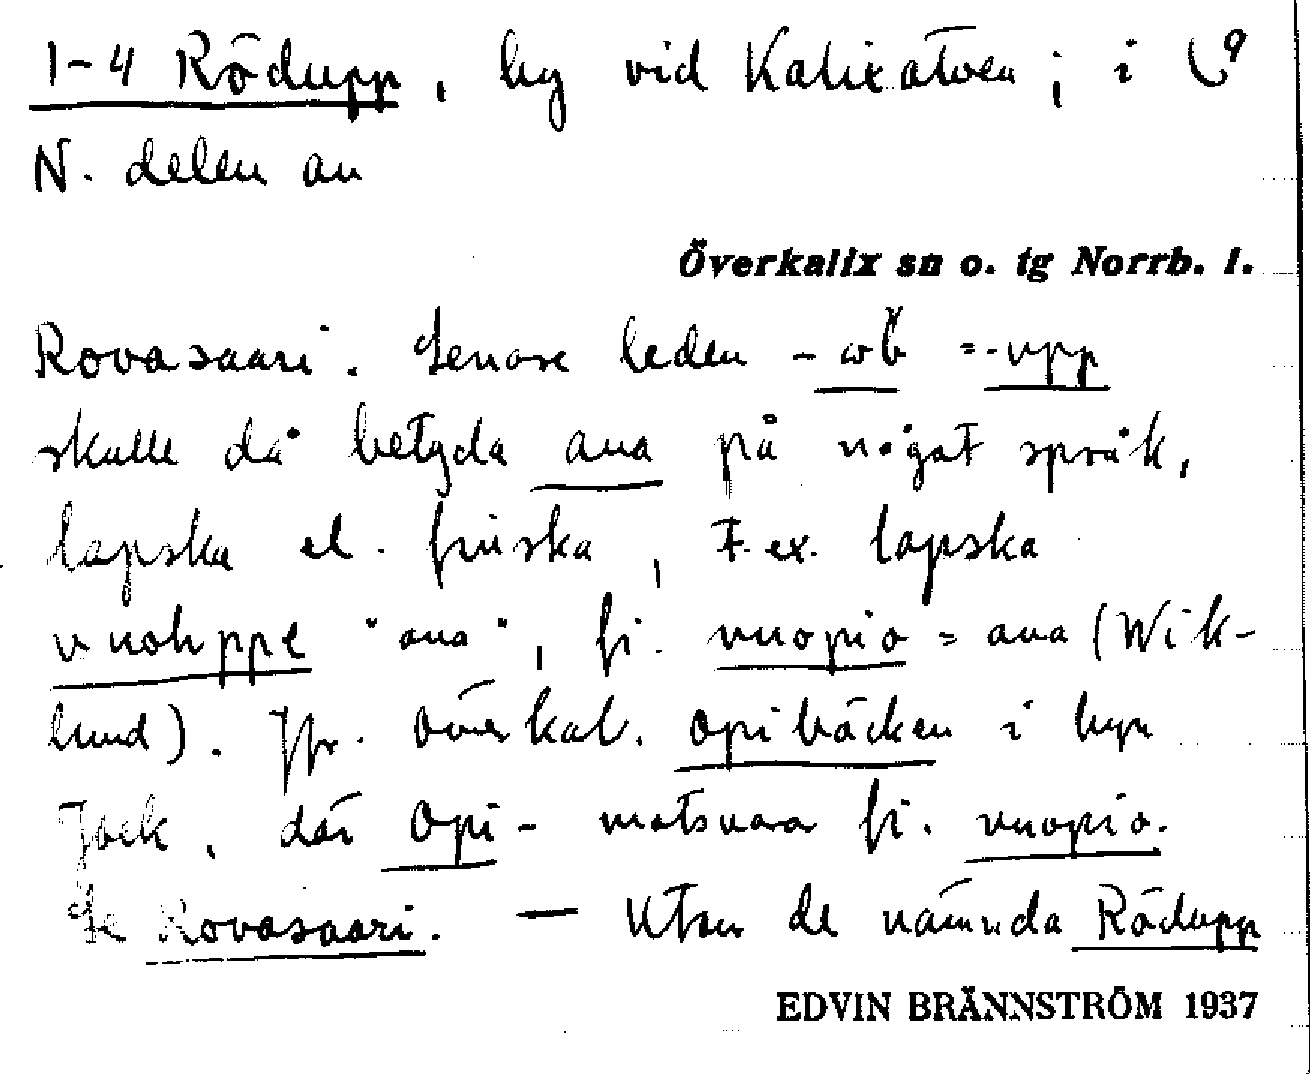 1-4 Rödupp, by vid Kalixälven; i 9
N. delen av
Överkalix sn o. tg Norrb. l.
Rovasaari. Senare leden - =-upp
skulle då betyda ava på något språk,
lapska el. finska, t.ex. lapska
vuohppe "ava", fi. vuopio = ava (Wik-
lund). Jfr. Överkal. Opibäcken i byn
Jock, där Opi- motsvara fi. vuopio.
Se Rovasaari. — Utom de nämnda Rödupp
EDVIN BRÄNNSTRÖM 1937